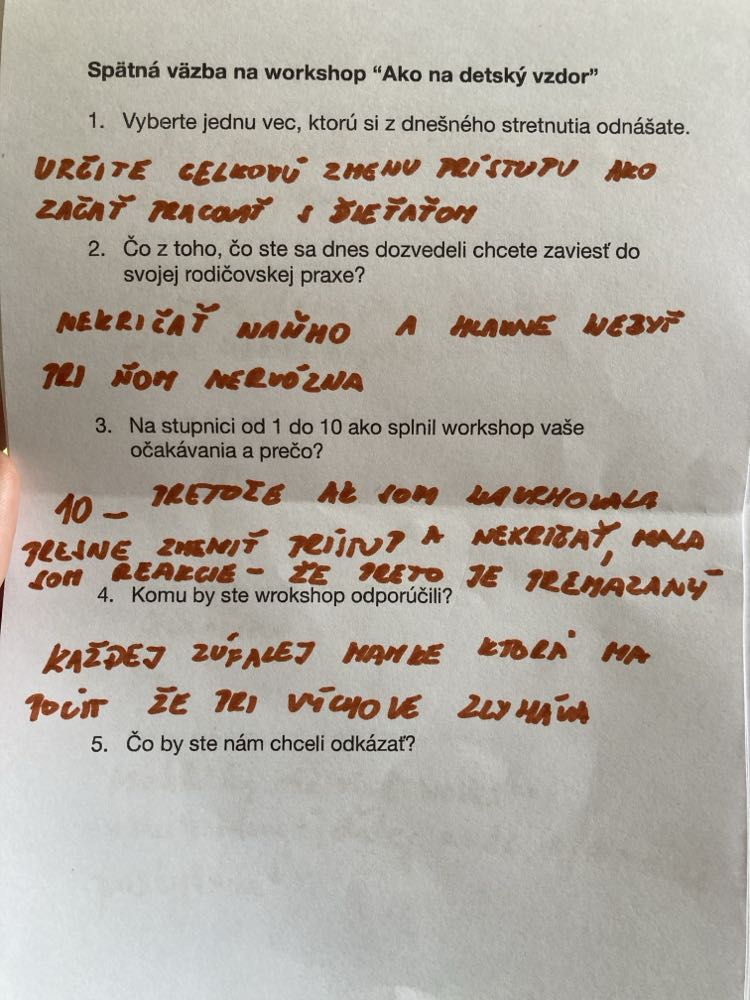 Spätná väzba na workshop “Ako na detský vzdor”
1. Vyberte jednu vec, ktorú si z dnešného stretnutia odnášate.
URČITE CELKOVÚ ZMENU PRÍSTUPU AKO
ZAČAŤ PRACOVAŤ S DIEŤAŤOM
2. Čo z toho, čo ste sa dnes dozvedeli chcete zaviesť do
svojej rodičovskej praxe?
NEKRIČAŤ NAŇHO A HLAVNE NEBYŤ
PRI ŇOM NERVÓZNA
3. Na stupnici od 1 do 10 ako splnil workshop vaše
očakávania a prečo?
10 – PRETOŽE AK SOM NAVRHOVALA
ZMENIŤ PRÍSTUP A NEKRIČAŤ, MALA
SOM REAKCIE – ŽE PRETO JE PREMAZANÝ
4. Komu by ste wrokshop odporúčili?
KAŽDEJ ZÚFALEJ MAMKE KTORÁ MA
POCIT ŽE PRI VÝCHOVE ZLYHÁVA
5. Čo by ste nám chceli odkázať?